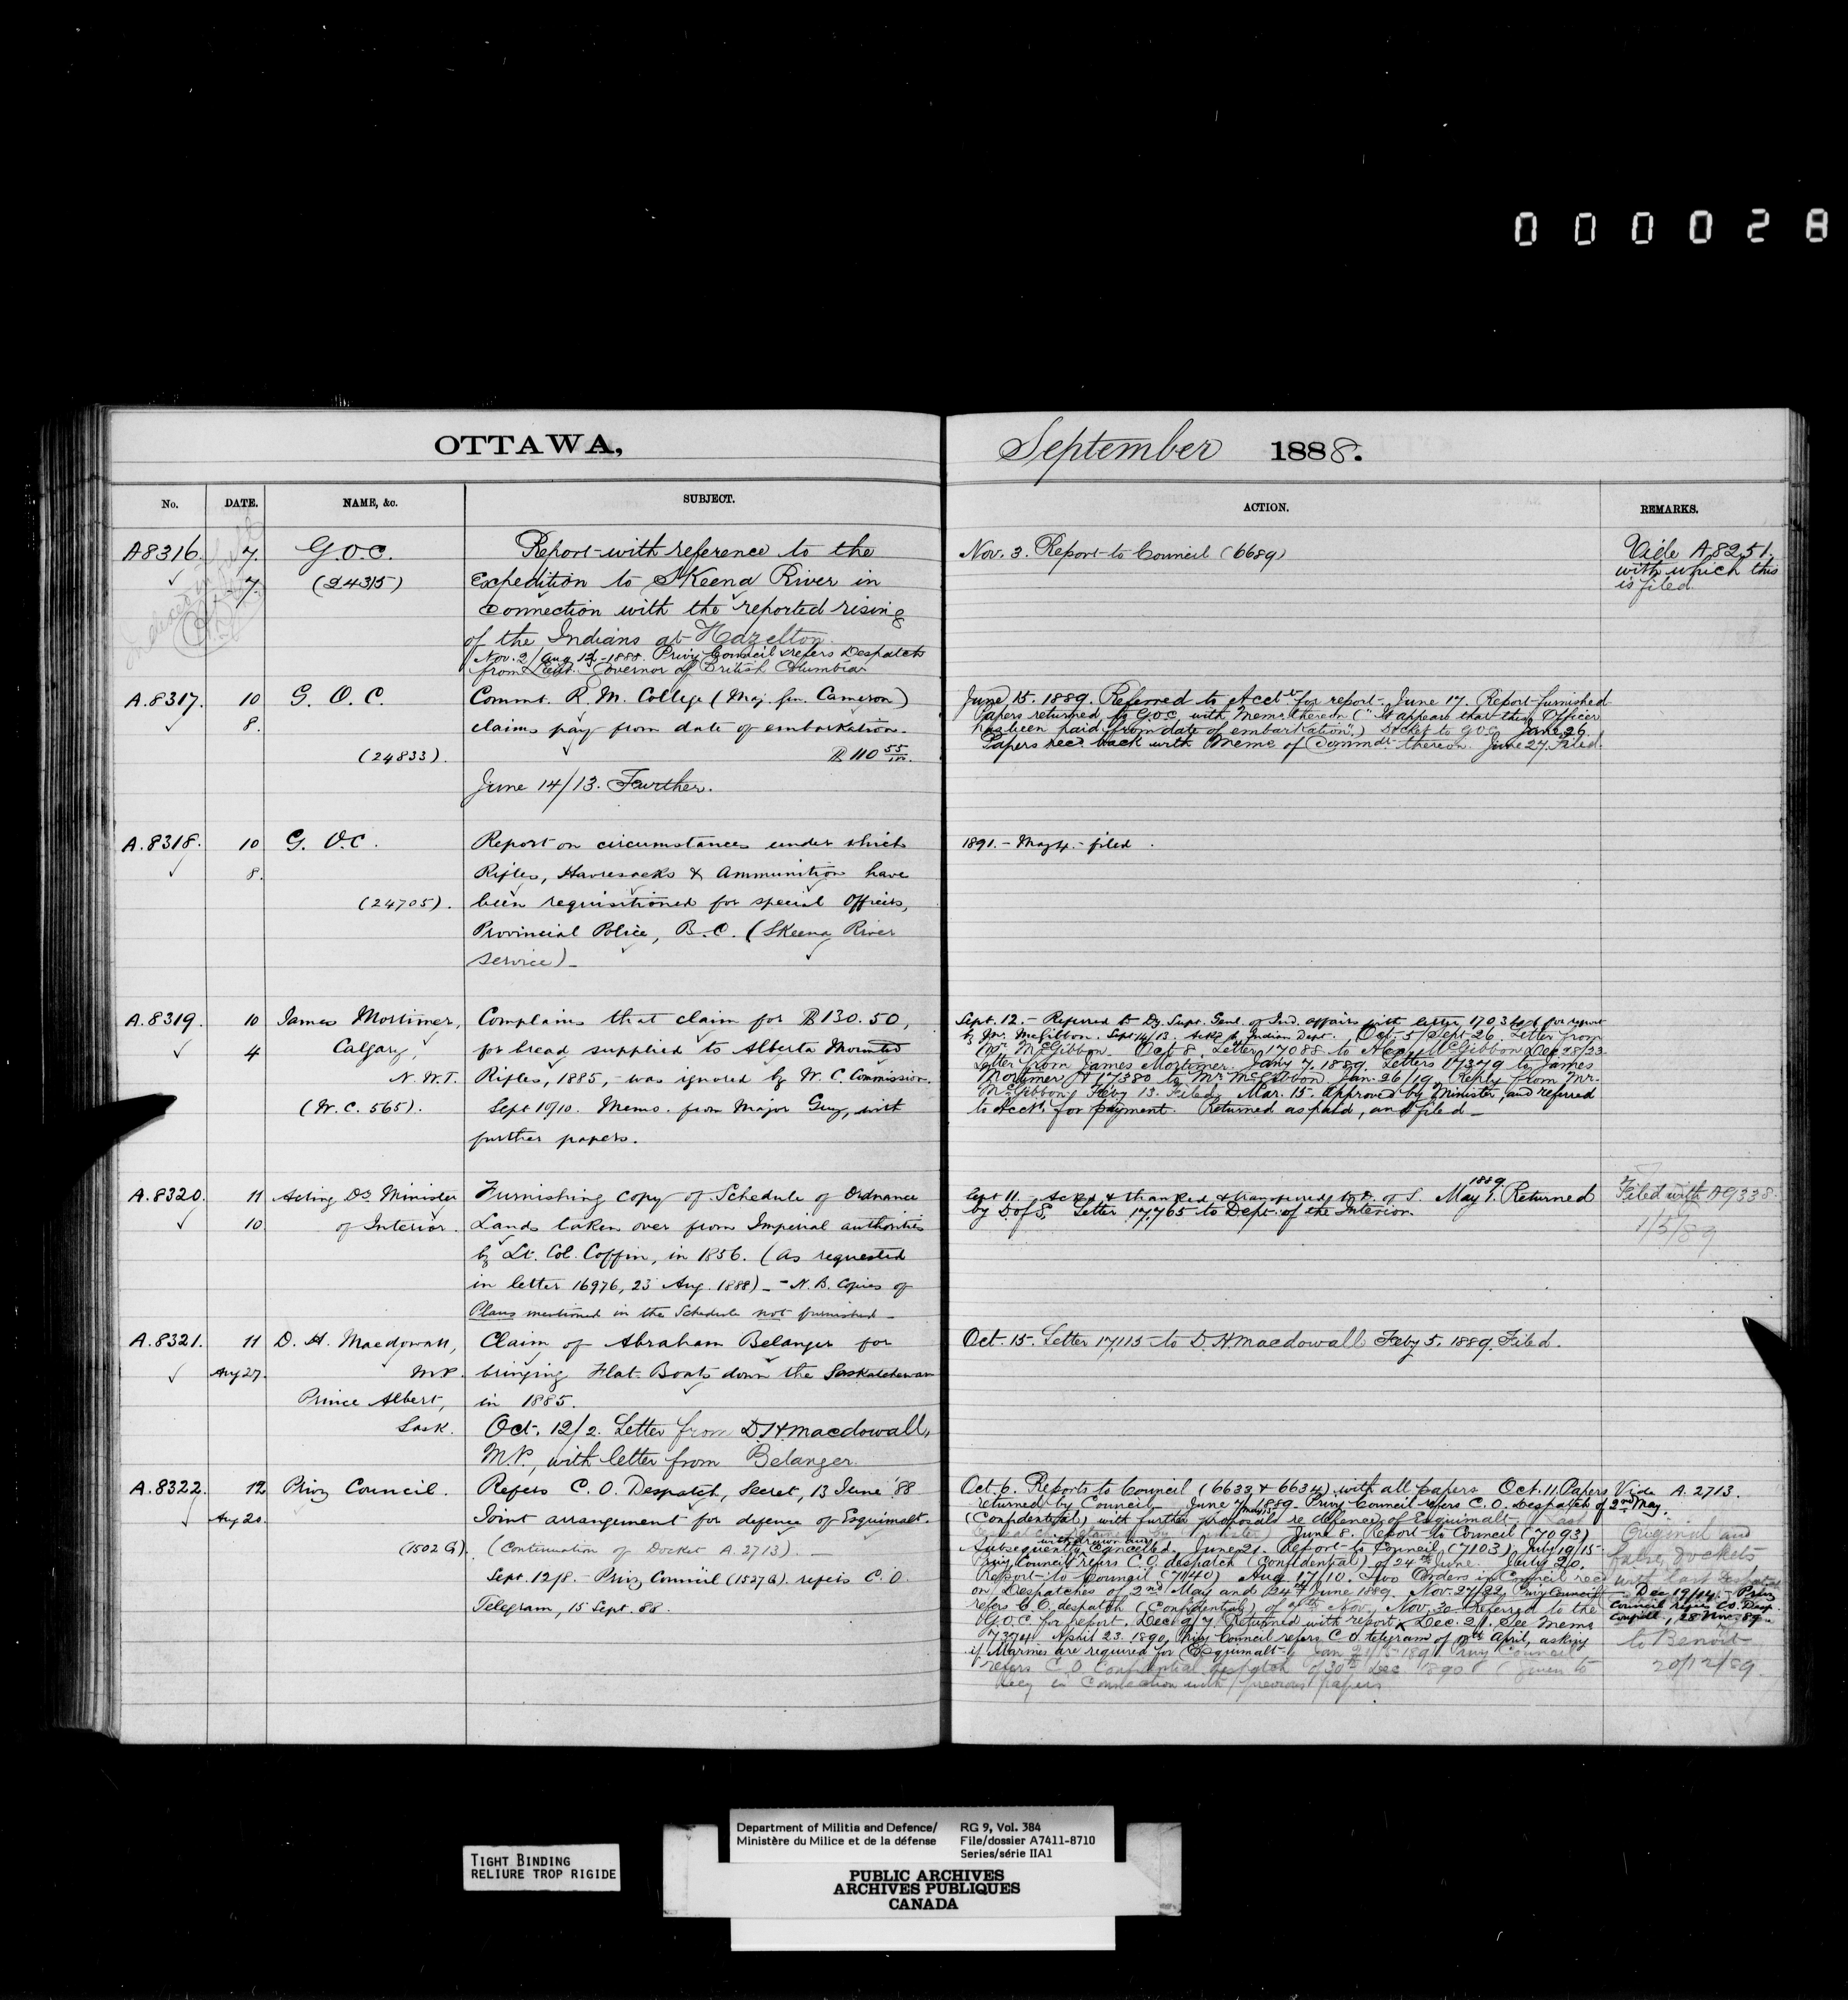 000028
OTTAWA,
September 1888.
No. DATE. NAME, &c. SUBJECT.
ACTION. REMARKS.
A8316. 7. G.O.C. Report with reference to the
7. (24315) Expedition to Skeena River in
connection with the reported rising
of the Indians at Hazelton.
Nov. 2/Aug 1888. Privy Council refers Despatch
from Lieut. Governor of British Columbia
Nov. 3. Report to Council (6689)
Vide A.8251.
with which this
is filed.
A.8317. 10 G. O. C. Commt. R. M. College (Maj. Gen. Cameron)
8. claims pay from date of embarkation.
(24833). $110 55/100.
June 14/13. Further.
June 15. 1889. Referred to Acct for report. June 17. Report furnished
Papers returned to G.O.C. with Memo thereon ("It appears that this Officer
has been paid from date of embarkation") Docket to G.O.C. June 26.
Papers rec'd back with Memo of Commdt thereon. June 27. Filed.
A.8318. 10 G. O.C. Report on circumstances under which
8. Rifles, Haversacks & Ammunition have
(24705). been requisitioned for special Officers,
Provincial Police, B.C. (Skeena River
Service)_
1891. - May 4. - filed.
A.8319. 10 James Mortimer, Complains that claim for $130.50,
4 Calgary, for bread supplied to Alberta Mounted
N.W.T. Rifles, 1885, - was ignored by W. C. Commission.
(W.C. 565). Sept 19/10. Memo. from Major Guy, with
further papers.
Sept. 12. - Referred to Dy. Supt. Genl. of Ind. affairs with letter for report
by Mr. McGibbon. Sept 14/13. Ackd by Indian Dept. Oct. 5/Sept. 26. Letter from
Mr. McGibbon. Oct 8. Letter 17088 to McGibbon Dec 28/23
Letter from James Mortimer. Jany 7. 1889. Letters 17379 to James
Mortimer & 17380 to Mr. McGibbon. Jan. 26/19. Reply from Mr.
McGibbon. Feby 13. Filed. Mar. 15. Approved by Minister, and referred
to Acct. for payment. Returned as paid, and filed_
A.8320. 11 Acting Dy. Minister Furnishing copy of Schedule of Ordnance
10. of Interior. Lands taken over from Imperial authorities
by Lt. Col. Coffin, in 1856. (as requested
in letter 16976, 23 Aug. 1888)_ - N.B. Copies of
Plans mentioned in the Schedule not furnished_
Sept 11. Ackd & thanked & transferred to D. of S. 1889 May 1. Returned
by D of S. Letter 17,765 to Dept. of the Interior.
Filed with A9338.
1/5/89
A.8321. 11 D. H. Macdowall, Claim of Abraham Belanger for
Aug 27. M.P. bringing Flat-Boats down the Saskatchewan
Prince Albert, in 1885.
Sask. Oct. 12/2. Letter from D.H. Macdowall,
M.P., with letter from Belanger.
Oct. 15. Letter 17,115 to D.H. Macdowall Feby 5. 1889. Filed.
A.8322. 12 Privy Council. Refers C. O. Despatch, Secret, 13 June '88
Aug 20. Joint arrangement for defence of Esquimalt.
(1502 G). (Continuation of Docket A.2713). _
Sept. 12/8. - Privy Council (1527 G). refers C. O.
Telegram, 15 Sept. 88.
Oct. 6. Reports to Council (6633 & 6634) with all papers. Oct. 11. Papers
returned by Council. June 7. 1889. Privy Council refers C. O. Despatch of 2nd May.
(Confidential) with further proposals re defence of Esquimalt. (Last
Despatch retained by Minister) June 8. Report to Council (7093)
withdrawn and
Subsequently Cancelled. June 21. Report to Council (7103) July 19/15.
Privy Council refers C. O. despatch (Confidential) of 24th June. July 20.
Report to Council (7140) Aug. 17/10. Two Orders in Council recd
on Despatches of 2nd May and 24th June 1889. Nov. 27/22. Privy Council
refers C. O. despatch (Confidential) of Nov. Nov. 30. Referred to the
G.O.C. for report. Dec. 9/7. Returned with report. Dec. 21. See Memo
7374. April 23. 1890. Privy Council refers C. O. telegram of April, asking
if Marines are required for Esquimalt. Jan 1891 Privy Council
refers C. O. Confidential despatch of 30th Dec 1890 (given to
in connection with previous papers
Vide A. 2713.
Original and
false dockets
with last despatch
Dec 19/14. - Privy
Council refers CO Desp.
28 Nov. 89.
to Benoit
20/12/89
TIGHT BINDING
RELIURE TROP RIGIDE
Department of Militia and Defence/
Ministère du Milice et de la défense
RG 9, Vol. 384
File/dossier A7411-8710
Series/série IIA1
PUBLIC ARCHIVES
ARCHIVES PUBLIQUES
CANADA